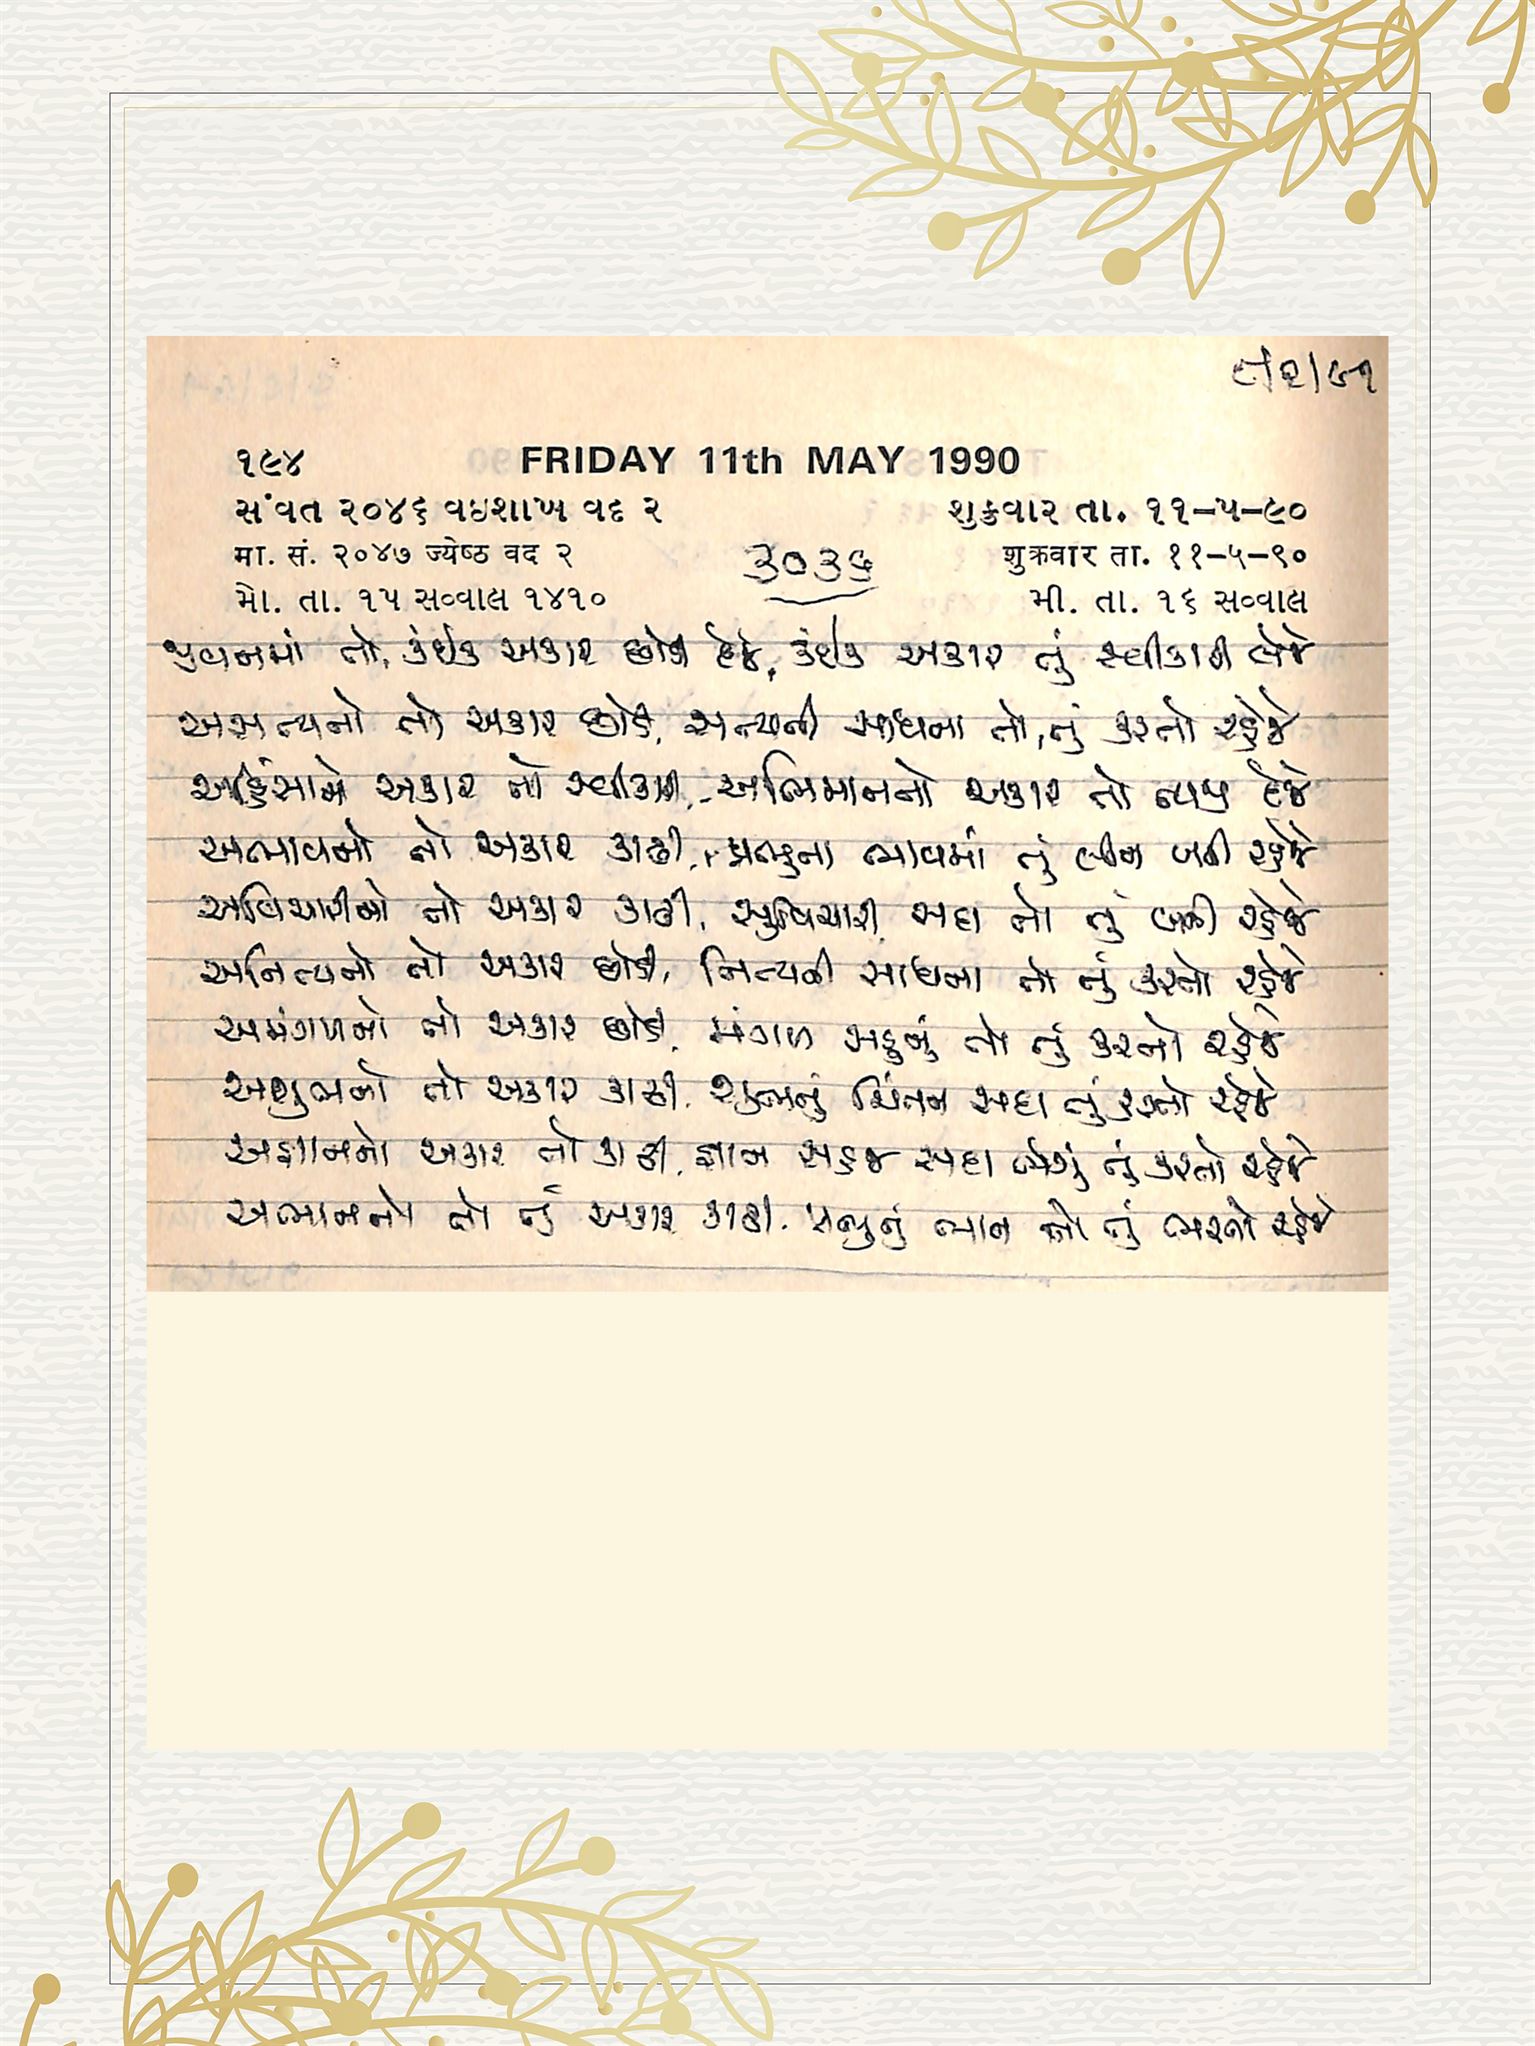 ૯/૨/૯૧
૧૯૪ FRIDAY 11th MAY 1990
સંવત ૨૦૪૬ વઇશાખ વદ ૨ શુક્રવાર તા. ૧૧-૫-૯૦
मा. सं. २०४७ ज्येष्ठ वद २ शुक्रवार ता. ११-५-९०
મો. તા. ૧૫ સવ્વાલ ૧૪૧૦ મી. તા. ૧૬ સવ્વાલ
૩૦૩૬
જીવનમાં તો, કંઈક અકાર છોડી દેજે, કંઈક અકાર તું સ્વીકારી લેજે
અસત્યનો તો અકાર છોડી, સત્યની સાધના તો, તું કરતો રહેજે
અહિંસાનો અકાર તો સ્વીકારી, અભિમાનનો અકાર તો ત્યજી દેજે
અભાવનો તો અકાર કાઢી, પ્રભુના ભાવમાં તું લીન બની રહેજે
અવિચારીનો તો અકાર કાઢી, સુવિચારી સદા તો તું બની રહેજે
અનિત્યનો તો અકાર છોડી, નિત્યની સાધના તો તું કરતો રહેજે
અમંગળનો તો અકાર છોડી, મંગળ સહુનું તો તું કરતો રહેજે
અશુભનો તો અકાર કાઢી, શુભનું ચિંતન સદા તું કરતો રહેજે
અજ્ઞાનનો અકાર તો કાઢી, જ્ઞાન સહજ સદા ભેગું તું કરતો રહેજે
અભાનનો તો તું અકાર કાઢી, પ્રભુનું ભાન તો તું ભરતો રહેજે